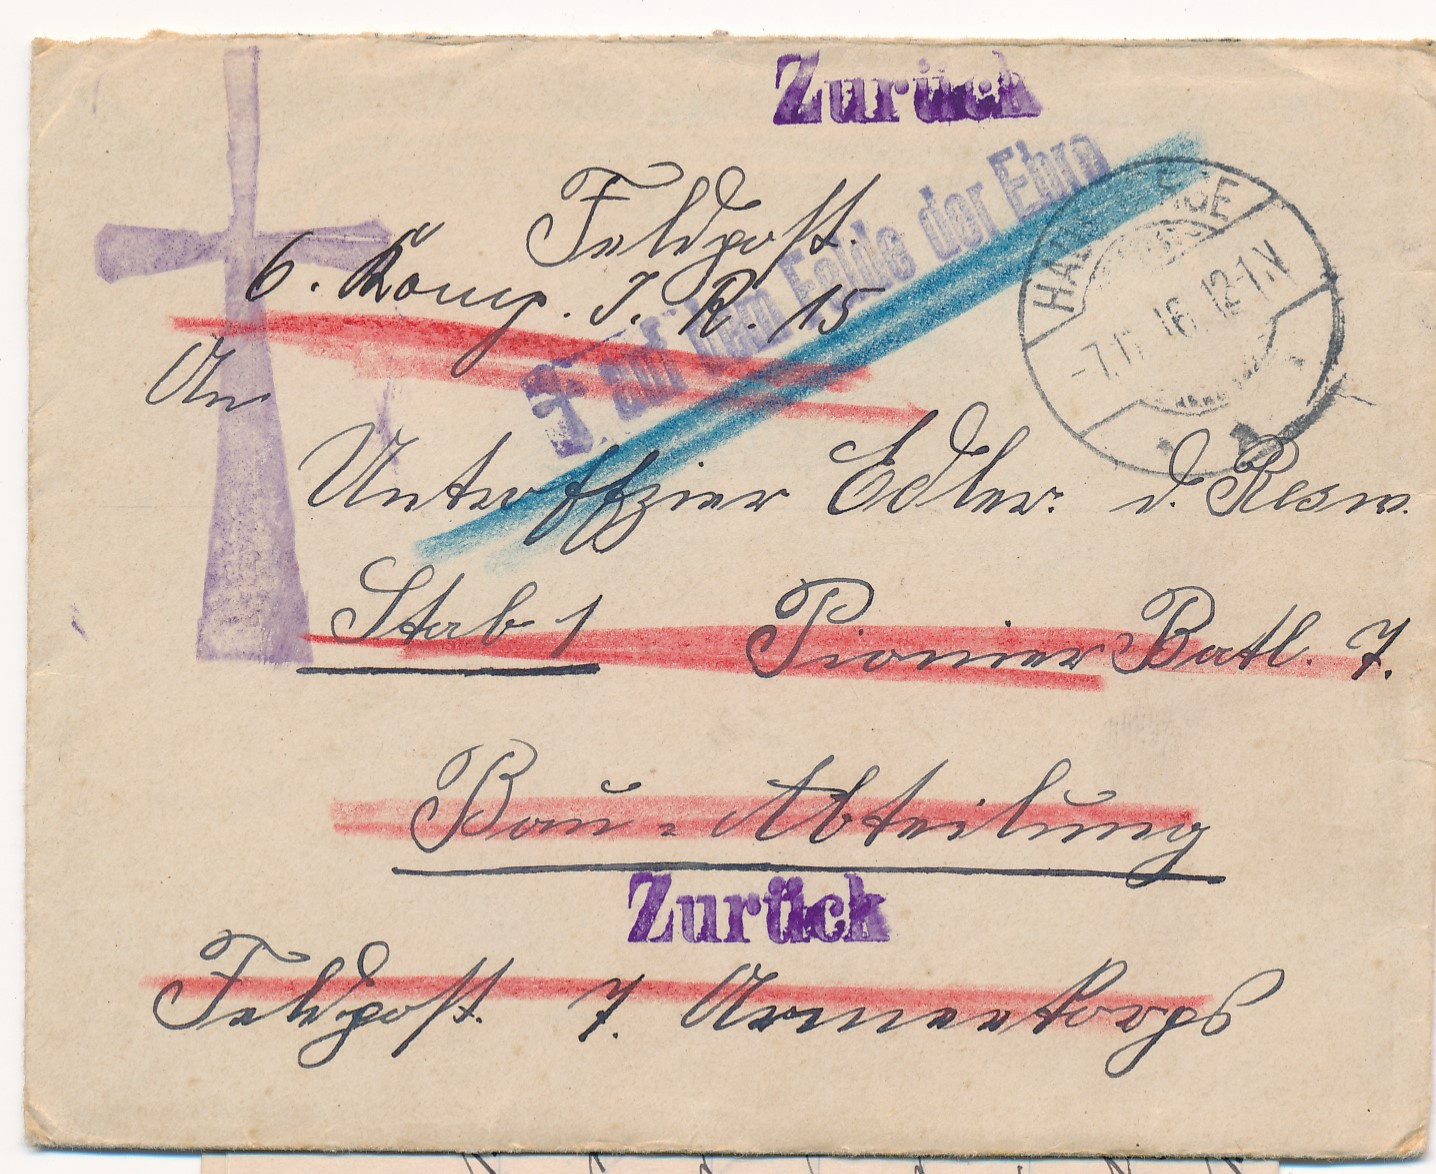 Zurück
Feldpost.
† auf dem Felde der Ehre
6. Komp. I. R. 15
-7.11.16.12-1.N
An
Unteroffizier Edler. d. Resw.
Stab 1 Pionier Batl. 7.
Bau-Abteilung
Zurück
Feldpost. 7. Armeekorps